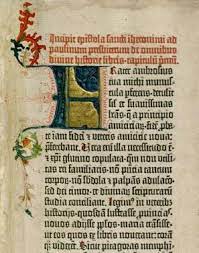 Incipit epistola sancti iheronimi ad
paulinum presbiterum de omnibus
divine historie libris. capitulū primū.
Frater ambrosius
tua michi munus-
cula perferens. detulit
sil et suavissimas
lrās. que a principio
amiciciaꝝ. fidē pba-
te iam fidei et veteris amicicie nova
preferebant. Vera eni illa necessitudo ē.
et xpi glutino copulata. qm non utili-
tas rei familiaris. nō presentia tantum
corporum. nō sbdola et palpans adulacō.
sed dei timor. et divinaꝝ scripturarum
studia conciliant. Legim9 in veterib9
historiis. quosdā lustrasse puincias.
novos adiisse plos. maria trāsisse. ut
eos quos ex libris noverant: coram
qꝫ viderēt. Sic pitagoras memphi-